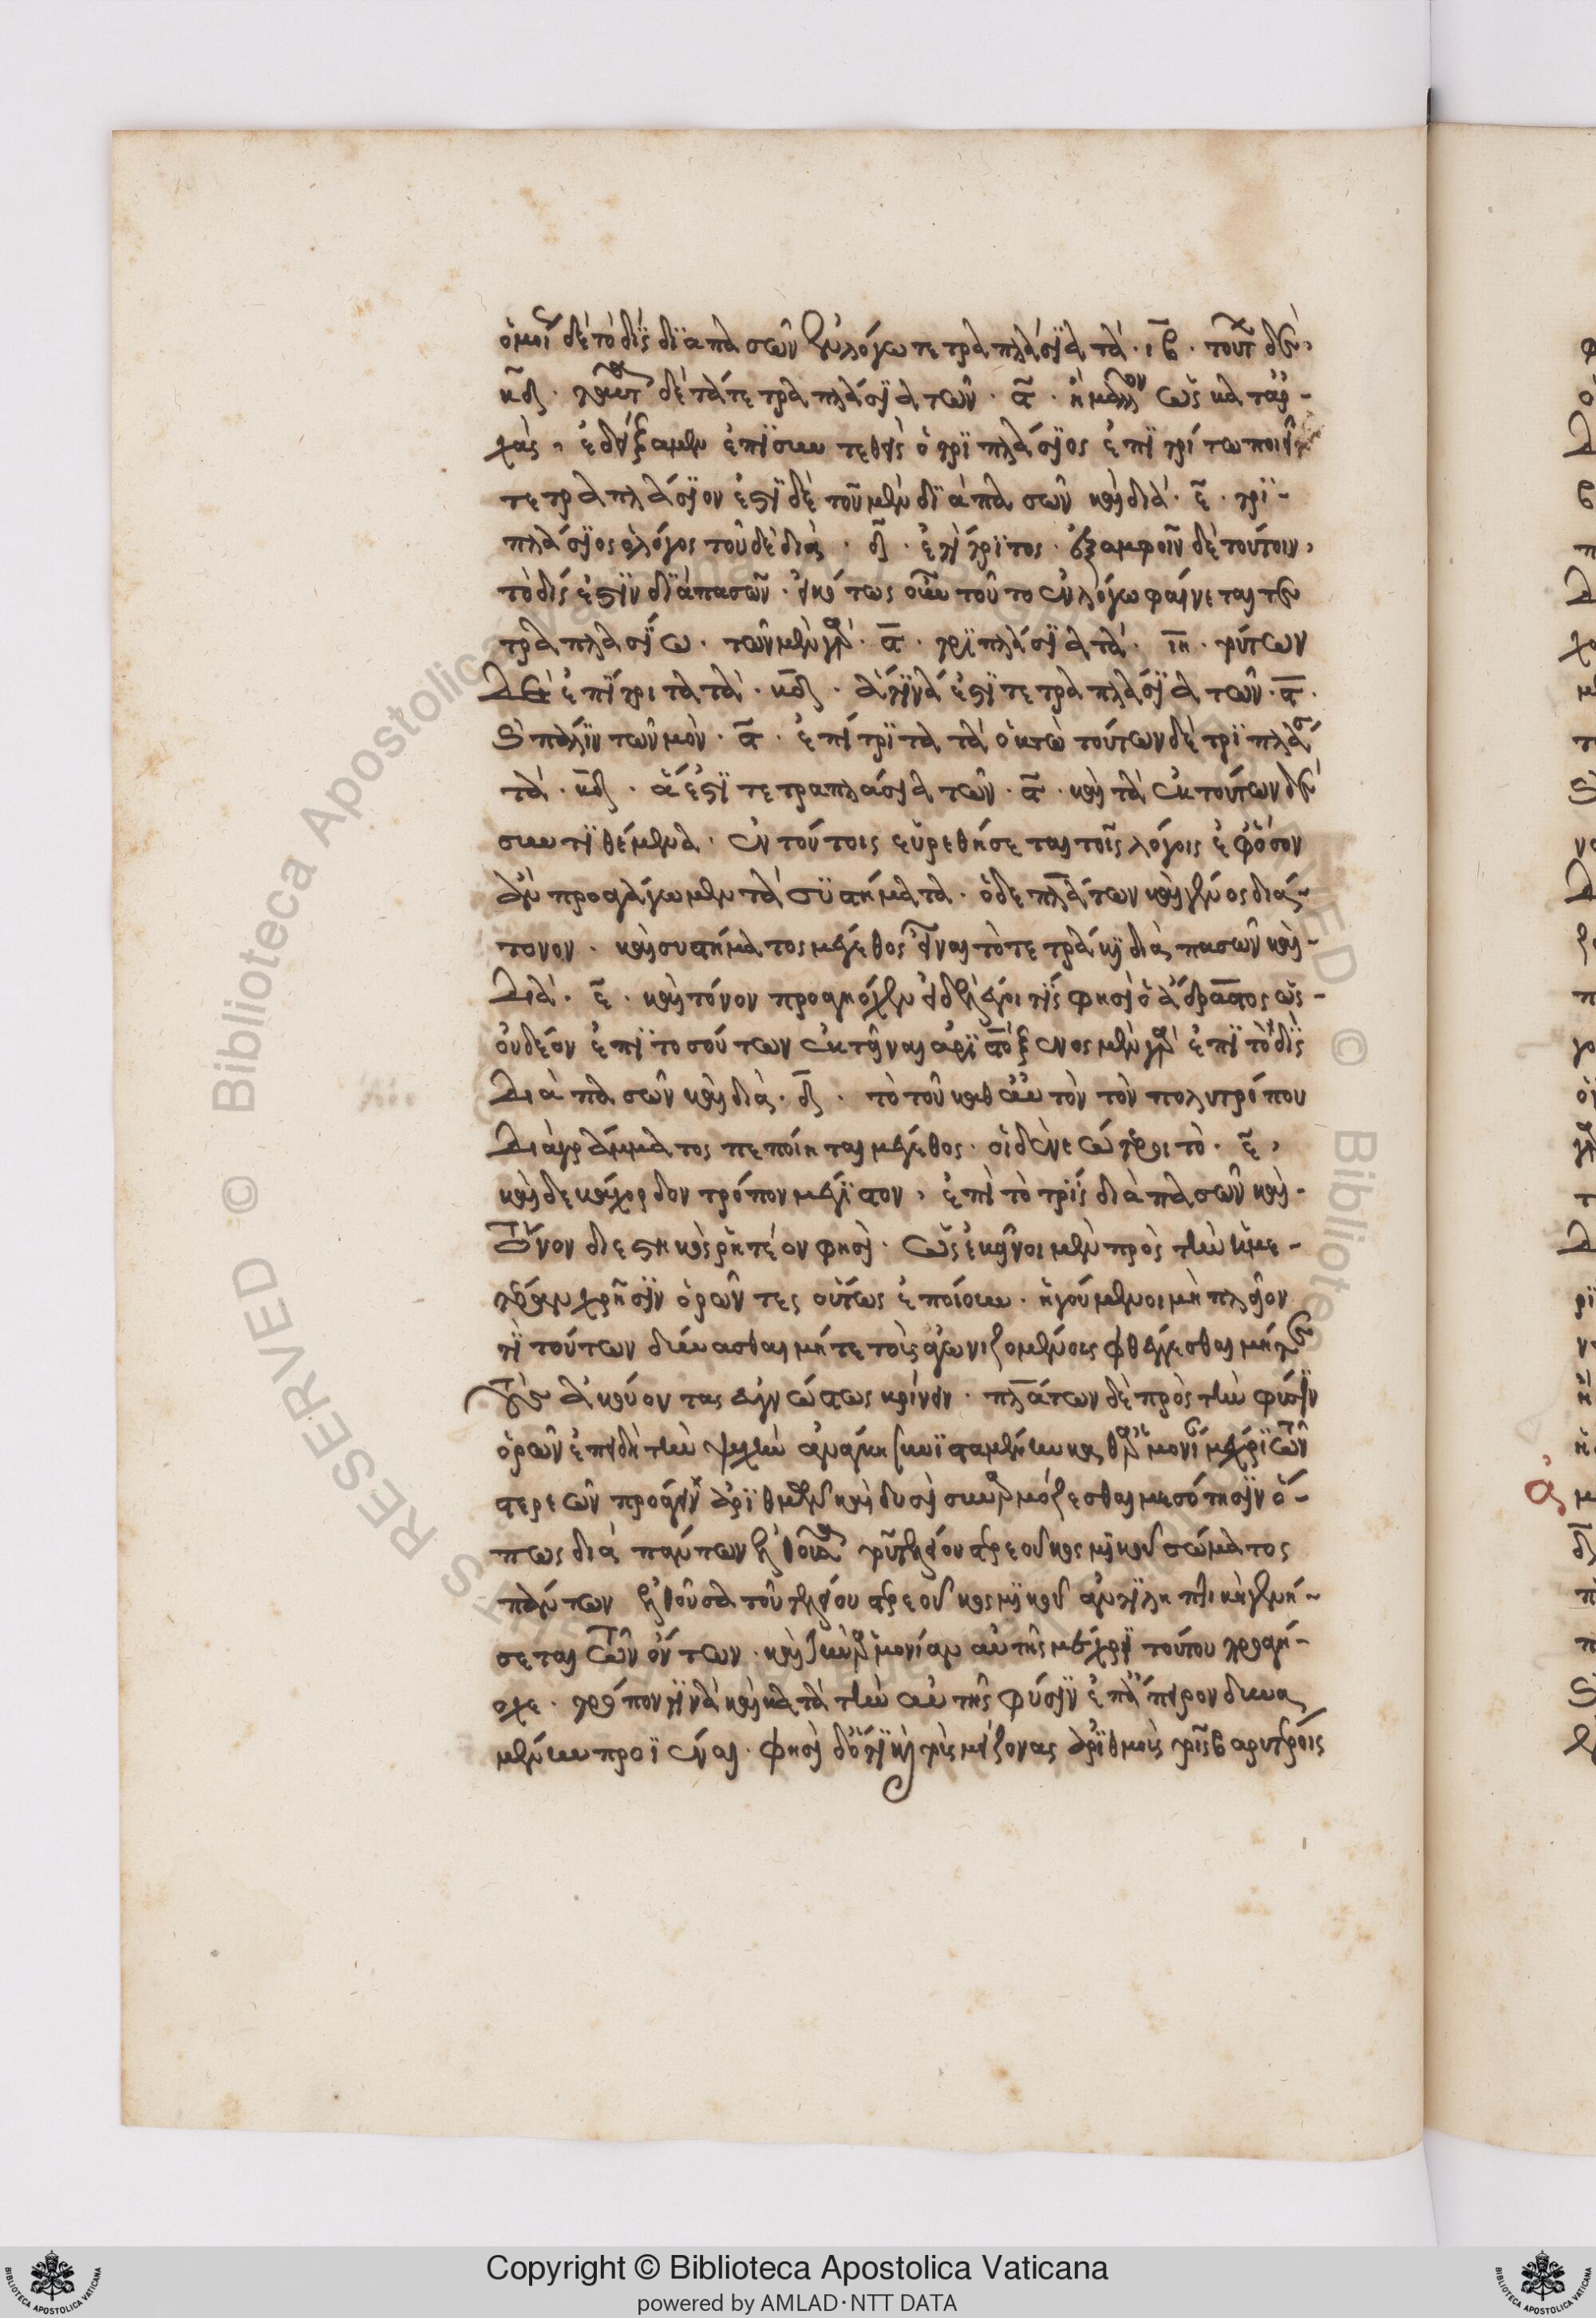 ὁμοί δὲ τὸ δὶς διὰ πασῶν ἐν λόγω τετραπλάσια τὰ · ιβ · τούτ δὲ
κδ · ταῦτα δὲ τὰ τετραπλάσια τῶν · ϛ · ἢ μᾶλλον ὡς κατ ἀρ-
χὰς, ἐδείξαμεν ἐπισυντεθεὶς ὁ τριπλάσιος ἐπιτρίτω ποιεῖ
τετραπλάσιον ἐστὶ δὲ τοῦ μὲν διὰ πασῶν καὶ διὰ · ε · τρι-
πλάσιος ὁ λόγος τοῦ δὲ διὰ · δ · ἐπίτριτος · ἐξ ἀμφοῖν δὲ τούτοιν,
τὸ δίς ἐστιν διὰ πασῶν · εἰκότως οὖν τοῦτο ἐν λόγω φαίνεται τε
τραπλασίω · τῶν μὲν γὰρ · ϛ · τριπλάσια τὰ · ιη · τούτων
δὲ ἐπίτριτα τὰ · κδ · ἅτινά ἐστι τετραπλάσια τῶν · ϛ ·
καὶ πάλιν τῶν μὲν · ϛ · ἐπίτριτα τὰ ὀκτὼ τούτων δὲ τριπλάσ
τὰ · κδ · ἅ ἐστι τετραπλάσια τῶν · ϛ · καὶ τὰ ἐκ τούτων δὲ
συντιθέμενα · ἐν τούτοις εὑρεθήσεται τοῖς λόγοις ἐφ ὅσον
ἂν προαγάγωμεν τὰ συστήματα · ὁ δε πλάτων καὶ γένος διά-
τονον · καὶ συστήματος μέγεθος εἶναι τὸ τετράκι διὰ πασῶν καὶ-
διὰ · ε · καὶ τόνον προαγήοχεν εἰ δὲ λέγοι τίς φησὶ ὁ ἄδραστος ὡς-
οὐ δέον ἐπὶ τοσούτων ἐκτεῖναι ἀριστόξενος μὲν γὰρ ἐπὶ τὸ δὶς
διὰ πασῶν καὶ διὰ · δ · τὸ τοῦ καθ αὑτὸν τὸν πολυτρόπου
διαγράμματος πεποίηται μέγεθος · οἱ δὲ νεώτεροι τὸ · ε,
καὶ δεκάχορδον τρόπον μέγιστον, ἐπὶ τὸ τρὶς διὰ πασῶν καὶ-
τόνον διεστηκὸς ῥητέον φησὶ · ὡς ἐκεῖνοι μὲν πρὸς τὴν ἡμε-
τέραν χρῆσιν ὁρῶντες οὕτως ἐποίουν · ἡγούμενοι μὴ πλεῖον
τι τούτων δύνασθαι μήτε τοὺς ἀγωνιζομένους φθέγγεσθαι μήτε
τοὺς ἀκούοντας εὐγνώστως κρίνειν · πλάτων δὲ πρὸς τὴν φύσιν
ὁρῶν ἐπειδὴ τὴν ψυχὴν ἀνάγκη συνισταμένην καθ ἁρμονίαν μέχρι τῶν
στερεῶν προάγειν ἀριθμῶν καὶ δυσὶ συναρμόζεσθαι μεσότησιν ὅ-
πως διὰ πάντων ἐλθοῦσα τοῦ τελείου στερεοῦ κοσμικοῦ σώματος
πάντων ἐλθοῦσα τοῦ τελείου στερεοῦ κοσμικοῦ ἀντιληπτικὴ γενή-
σεται τῶν ὄντων · καὶ τὴν ἁρμονίαν αὐτῆς μέχρι τούτου προαγή-
οχε · τρόπον τινὰ καὶ κατὰ τὴν αὐτῆς φύσιν ἐπ ἄπειρον δυνα
μένην προϊέναι · φησὶ δ ὅτι καὶ τοὺς μείζονας ἀριθμοὺς τοῖς βαρυτέροις